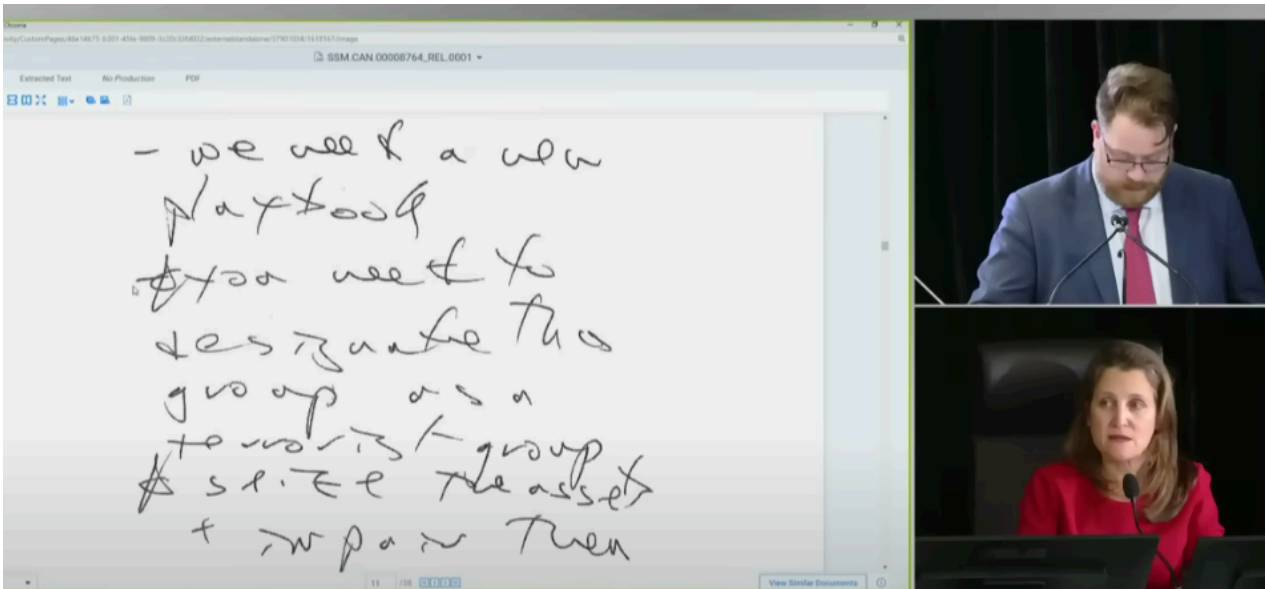 Chrome
SSM.CAN.00008764_REL.0001
Extracted Text No Production PDF
- we need a new
playbook
you need to
designate the
group as a
terrorist group
seize the assets
+ impair them
11 /38
View Similar Documents